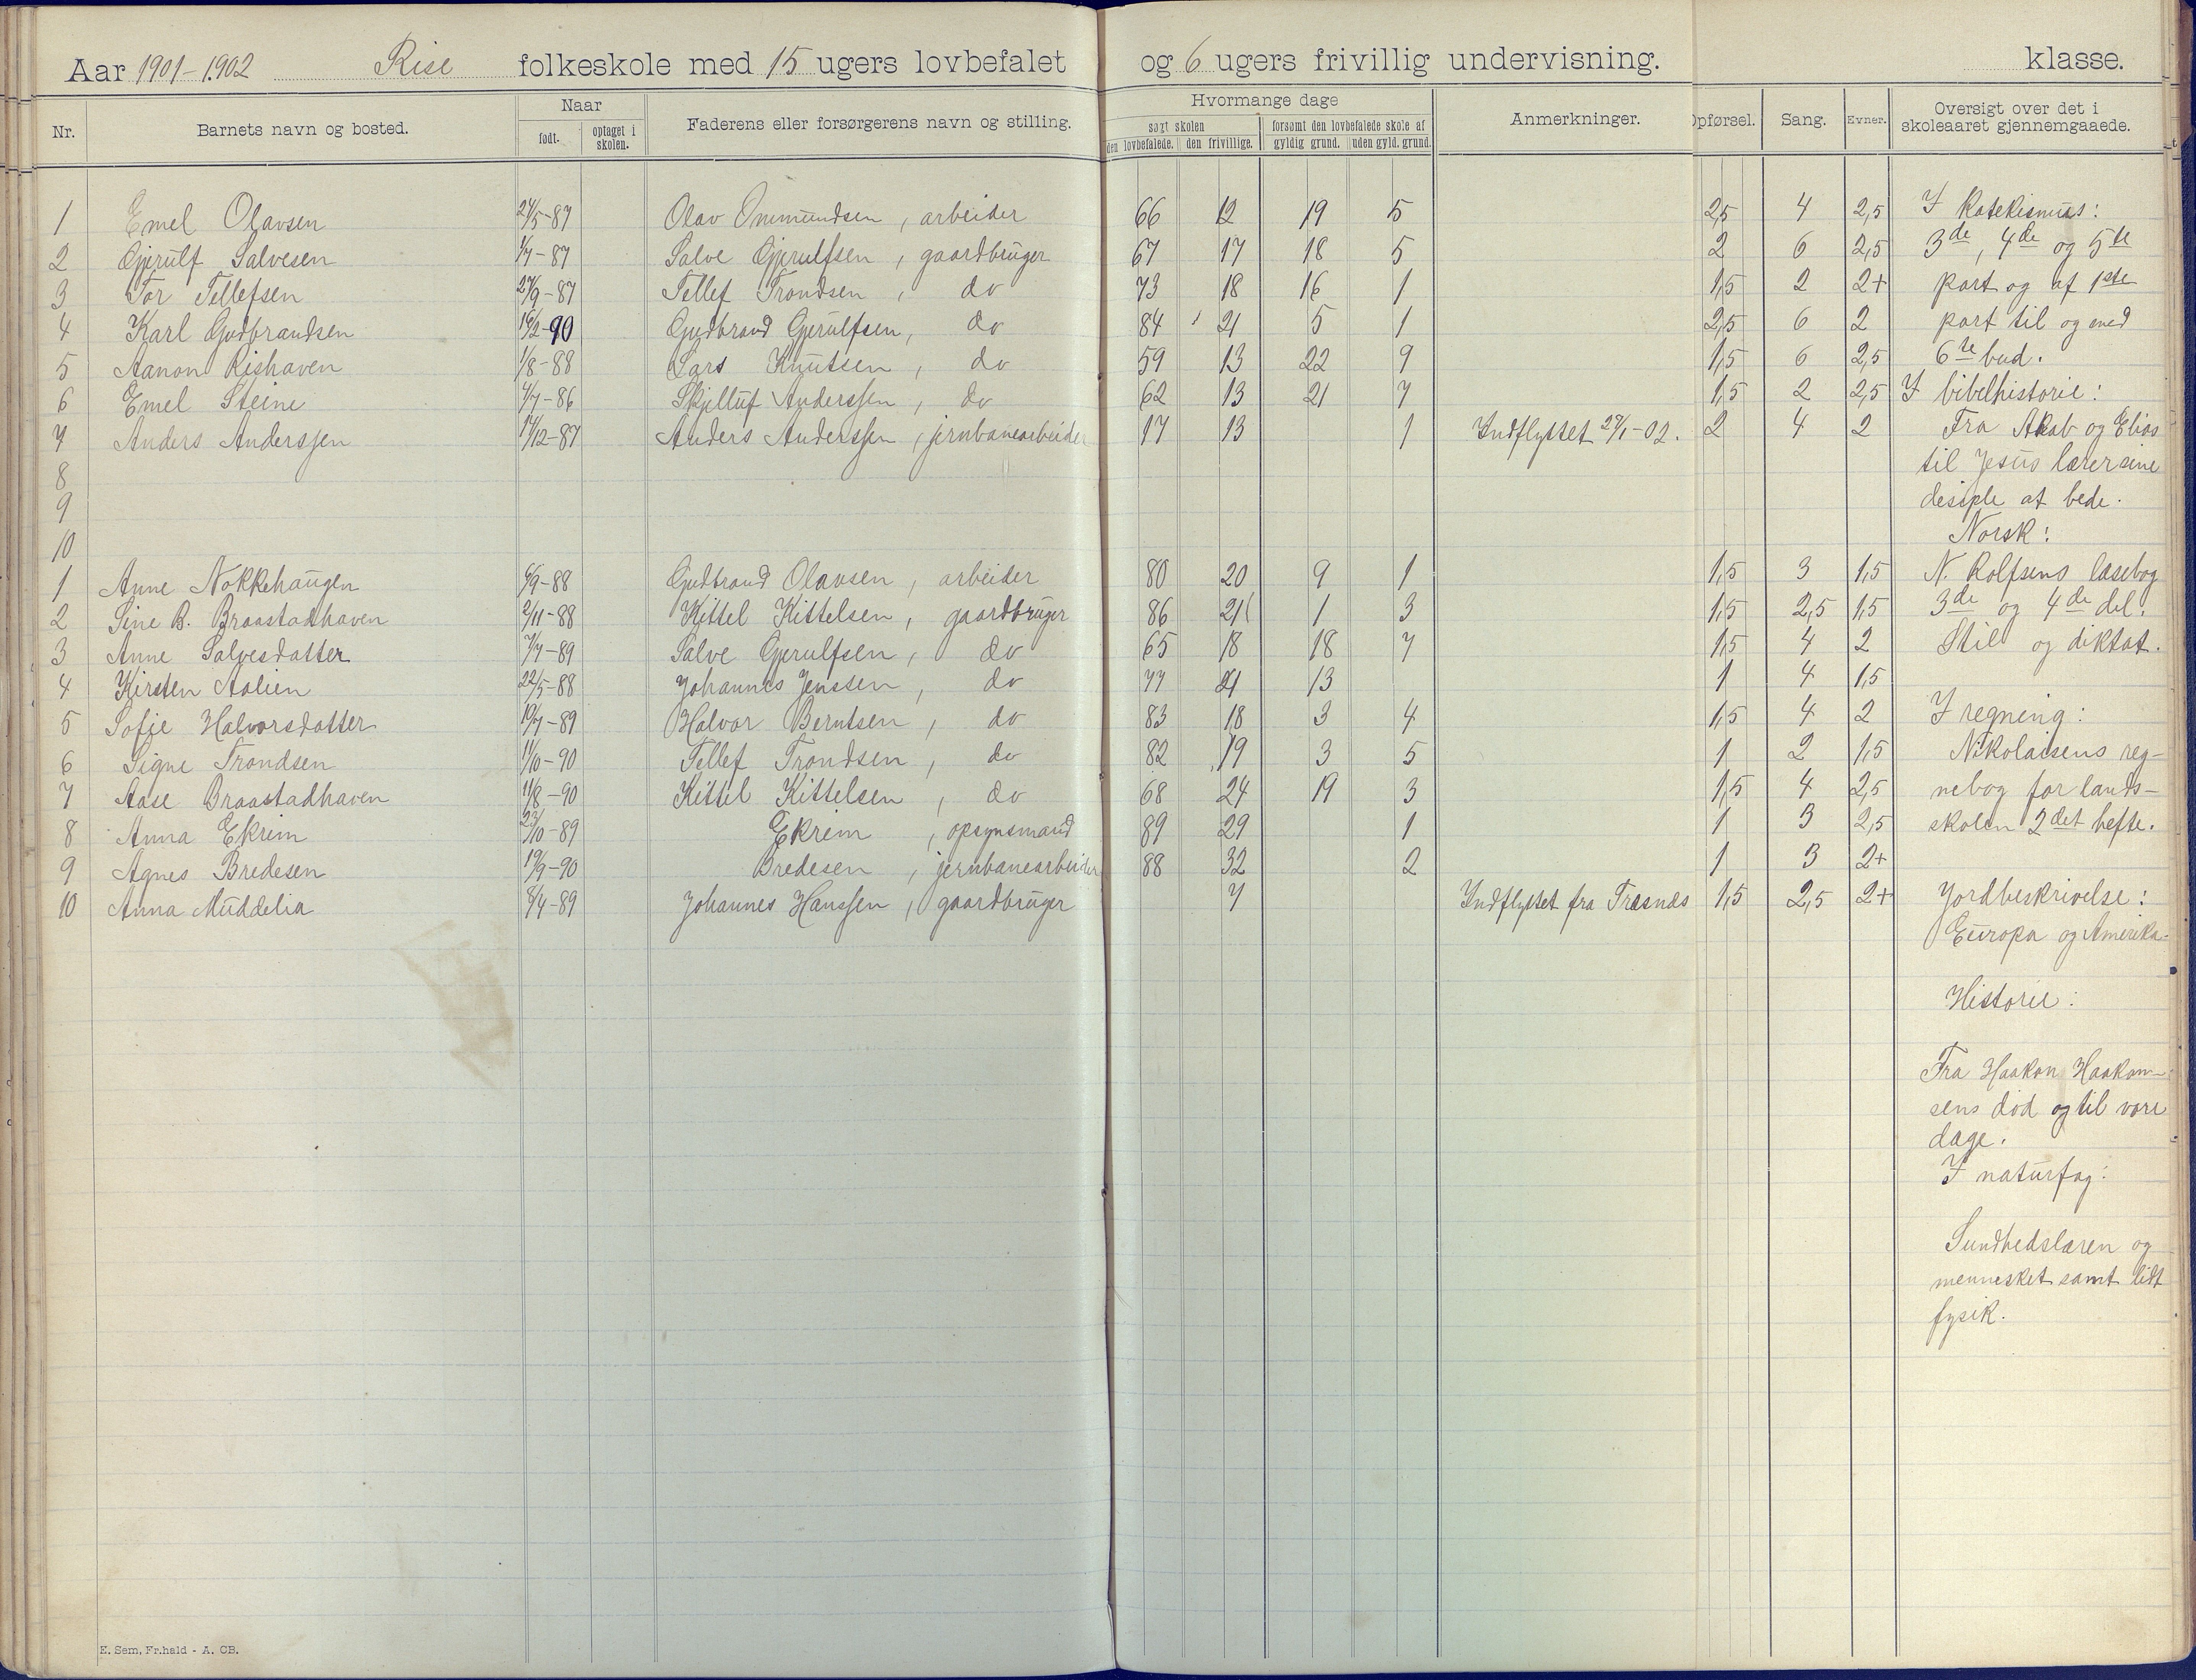 Aar 1901-1902 Rise folkeskole med 15 ugers lovbefalet og 6 ugers frivillig undervisning. klasse.
Nr. Barnets navn og bosted. Naar født. optaget i skolen. Faderens eller forsørgerens navn og stilling. Hvormange dage søgt skolen den lovbefalede. den frivillige. forsømt den lovbefalede skole af gyldig grund. uden gyld. grund. Anmerkninger. Opførsel. Sang. Evner. Oversigt over det i skoleaaret gjennemgaaede.
1 Emel Olavsen 24/5-87 Olav Ommundsen, arbeider 66 12 19 5 2,5 4 2,5 I Katekismus:
2 Gjerulf Salvesen 1/7-87 Salve Gjerulfsen, gaardbruger 67 17 18 5 2 6 2,5 3de, 4de og 5te
3 Tor Tellefsen 27/9-87 Tellef Trondsen, do 73 18 16 1 1,5 2 2+ part og af 1ste
4 Karl Gudbrandsen 16/2-90 Gudbrand Gjerulfsen, do 84 21 5 1 2,5 6 2 part til og med
5 Aanon Rishaven 1/8-88 Lars Knutsen, do 59 13 22 9 1,5 6 2,5 6te bud.
6 Emel Steine 4/7-86 Skjelluf Anderssen, do 62 13 21 7 1,5 2 2,5 I bibelhistorie:
7 Anders Anderssen 17/12-87 Anders Anderssen, jernbanearbeider 17 13 1 Indflyttet 27/1-02. 2 4 2 Fra Akab og Elias
8 til Jesus lærer sine
9 desiple at bede.
10 Norsk:
1 Anne Nokkehaugen 6/9-88 Gudbrand Olavsen, arbeider 80 20 9 1 1,5 3 1,5 N. Rolfsens læsebog
2 Sine B. Braastadhaven 2/11-88 Kittel Kittelsen, gaardbruger 86 21 1 3 1,5 2,5 1,5 3de og 4de del.
3 Anne Salvesdatter 7/7-89 Salve Gjerulfsen, do 65 18 18 7 1,5 4 2 Stil og diktat.
4 Kirsten Aalien 22/5-88 Johannes Jenssen, do 77 21 13 1 4 1,5
5 Sofie Halvorsdatter 19/7-89 Halvor Berntsen, do 83 18 3 4 1,5 4 2 I regning:
6 Signe Trondsen 11/10-90 Tellef Trondsen, do 82 19 3 5 1 2 1,5 Nikolaisens reg-
7 Aase Braastadhaven 11/8-90 Kittel Kittelsen, do 68 24 19 3 1,5 4 2,5 nebog for lands-
8 Anna Ekrim 23/10-89 Ekrim, opsynsmand 89 29 1 1 3 2,5 skolen 2det hefte.
9 Agnes Bredesen 19/9-90 Bredesen, jernbanearbeider 88 32 2 1 3 2+
10 Anna Muddelia 8/4-89 Johannes Hanssen, gaardbruger 7 Indflyttet fra Træsnæs 1,5 2,5 2+ Jordbeskrivelse:
Europa og Amerika.
Historie:
Fra Haakon Haakon-
sens død og til vore
dage.
I naturfag:
Sundhedslæren og
mennesket samt lidt
fysik.
E. Sem, Fr.hald - A. CB.